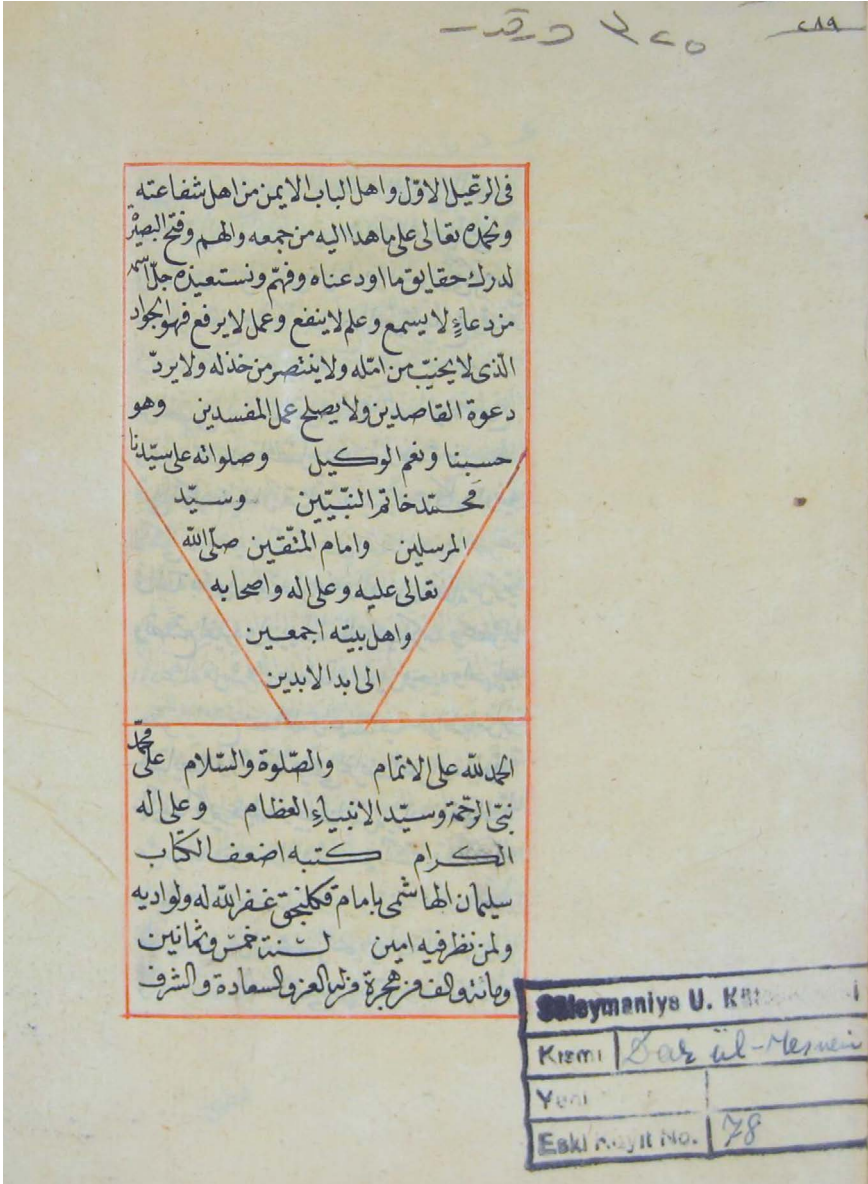 ٢٨٩
٣٢٥ ورقـ
فى الرعيل الاوّل واهل الباب الايمن من اهل شفاعته
ونحمده تعالى على ما هدا اليه من جمعه والهم وفتح البصيرة
لدرك حقايق ما اودعناه وفهّم ونستعيذه جلّ اسمه
من دعاءٍ لا يسمع وعلم لا ينفع وعمل لا يرفع فهو الجواد
الّذى لا يخيّب من امّله ولا ينتصر من خذله ولا يردّ
دعوة القاصدين ولا يصلح عمل المفسدين وهو
حسبنا ونعم الوكيل وصلواته على سيّدنا
محمّد خاتم النبّيين وسيّد
المرسلين وامام المتّقين صلّى الله
تعالى عليه وعلى اله واصحابه
واهل بيته اجمعين
الى ابد الابدين
الحمد لله على الاتمام والصّلوة والسّلام على محمّد
نبىّ الرحمة وسيّد الانبياءِ العظام وعلى اله
الكرام كتبه اضعف الكتّاب
سليمان الهاشمى بامام غفر الله له ولوالديه
ولمن نظر فيه امين لسنة خمس وثمانين
ومائة والف من هجرة من له العز والسعادة والشرف
Süleymaniye U. Kütüphanesi
Kısmı Dar ül-Mesnevi
Yeni
Eski Kayıt No. 78